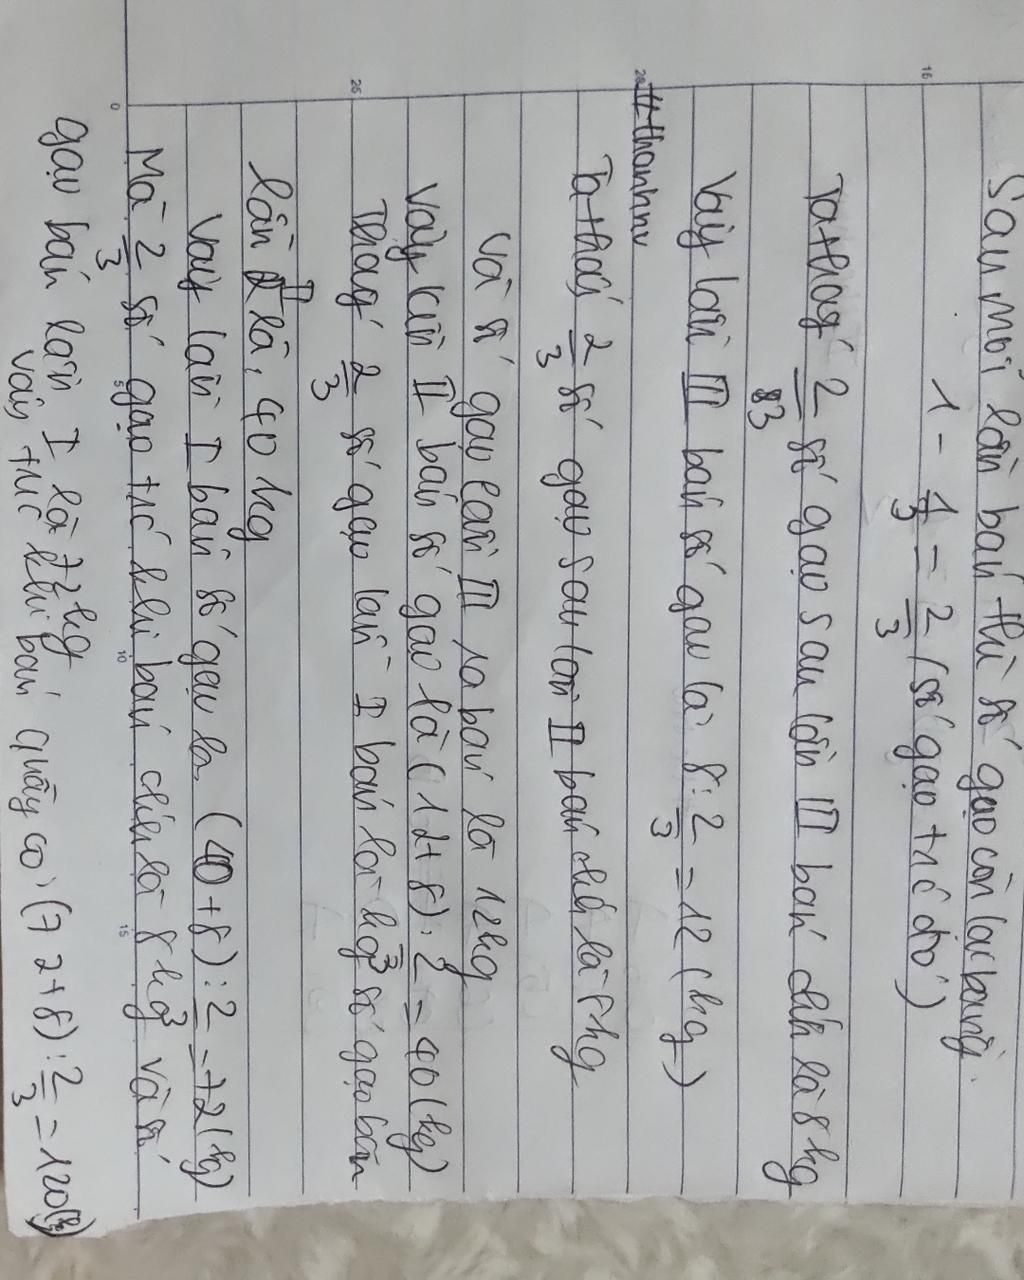 Sau mỗi lần bán thì số gạo còn lại bằng.
1 - 1/3 = 2/3 (số gạo trước đó)
Ta thấy 2/3 số gạo sau lần III bán chính là 8 kg
Vậy lần III bán số gạo là 8 : 2/3 = 12 (kg)
#thanhnv
Ta thấy 2/3 số gạo sau lần II bán chính là 8 kg
Và số gạo lần III là bán là 12kg
Vậy lần II bán số gạo là (12+8) : 2/3 = 40 (kg)
Thấy 2/3 số gạo lần I bán là kg số gạo bán
lần II là, 40 kg
Vậy lần I bán số gạo là (40+8) : 2/3 = 72 (kg)
Mà 2/3 số gạo trước khi bán chính là 8 kg và số
gạo bán lần I là 72kg
Vậy trước khi bán quầy có (72+8) : 2/3 = 120 (kg)
0
5
10
15
16
20
25